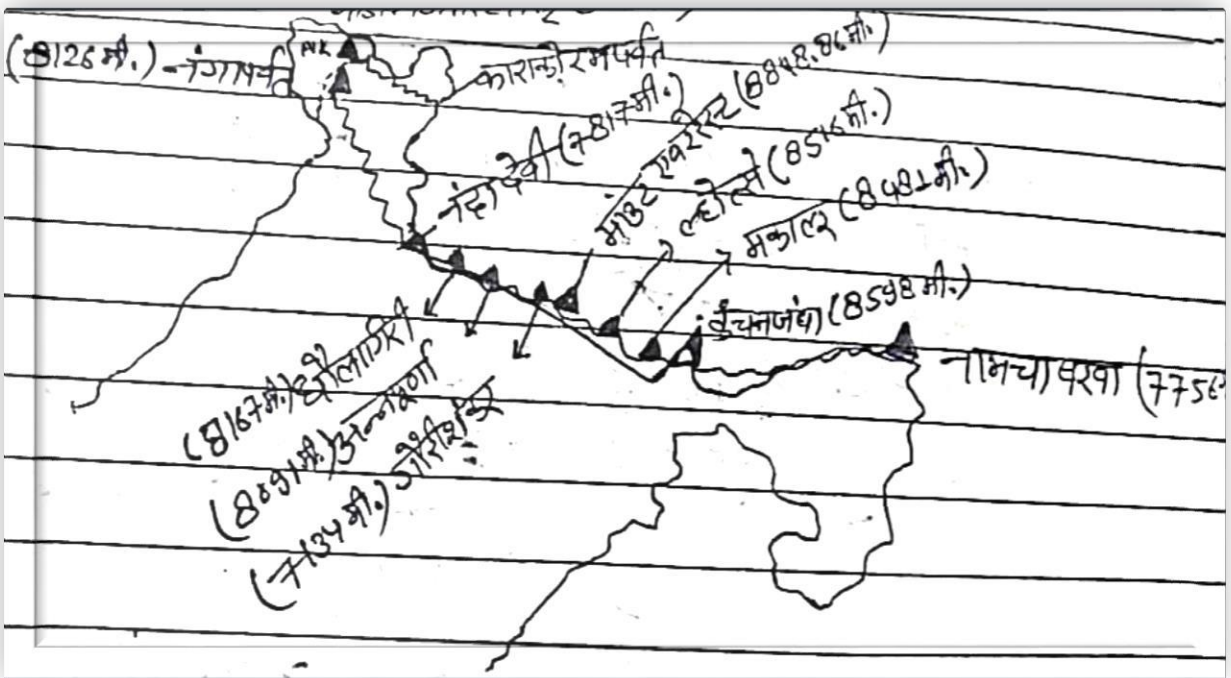 (8126 मी.) नंगापर्वत
PVK
काराकोरम पर्वत
नंदा देवी (7817 मी.)
माउंट एवरेस्ट (8848.86 मी.)
ल्होत्से (8516 मी.)
मकालू (8481 मी.)
कंचनजंघा (8598 मी.)
नामचा बरवा (7756
(8167 मी.) धौलागिरी
(8091 मी.) अन्नपूर्णा
(7134 मी.) गौरीशंकर